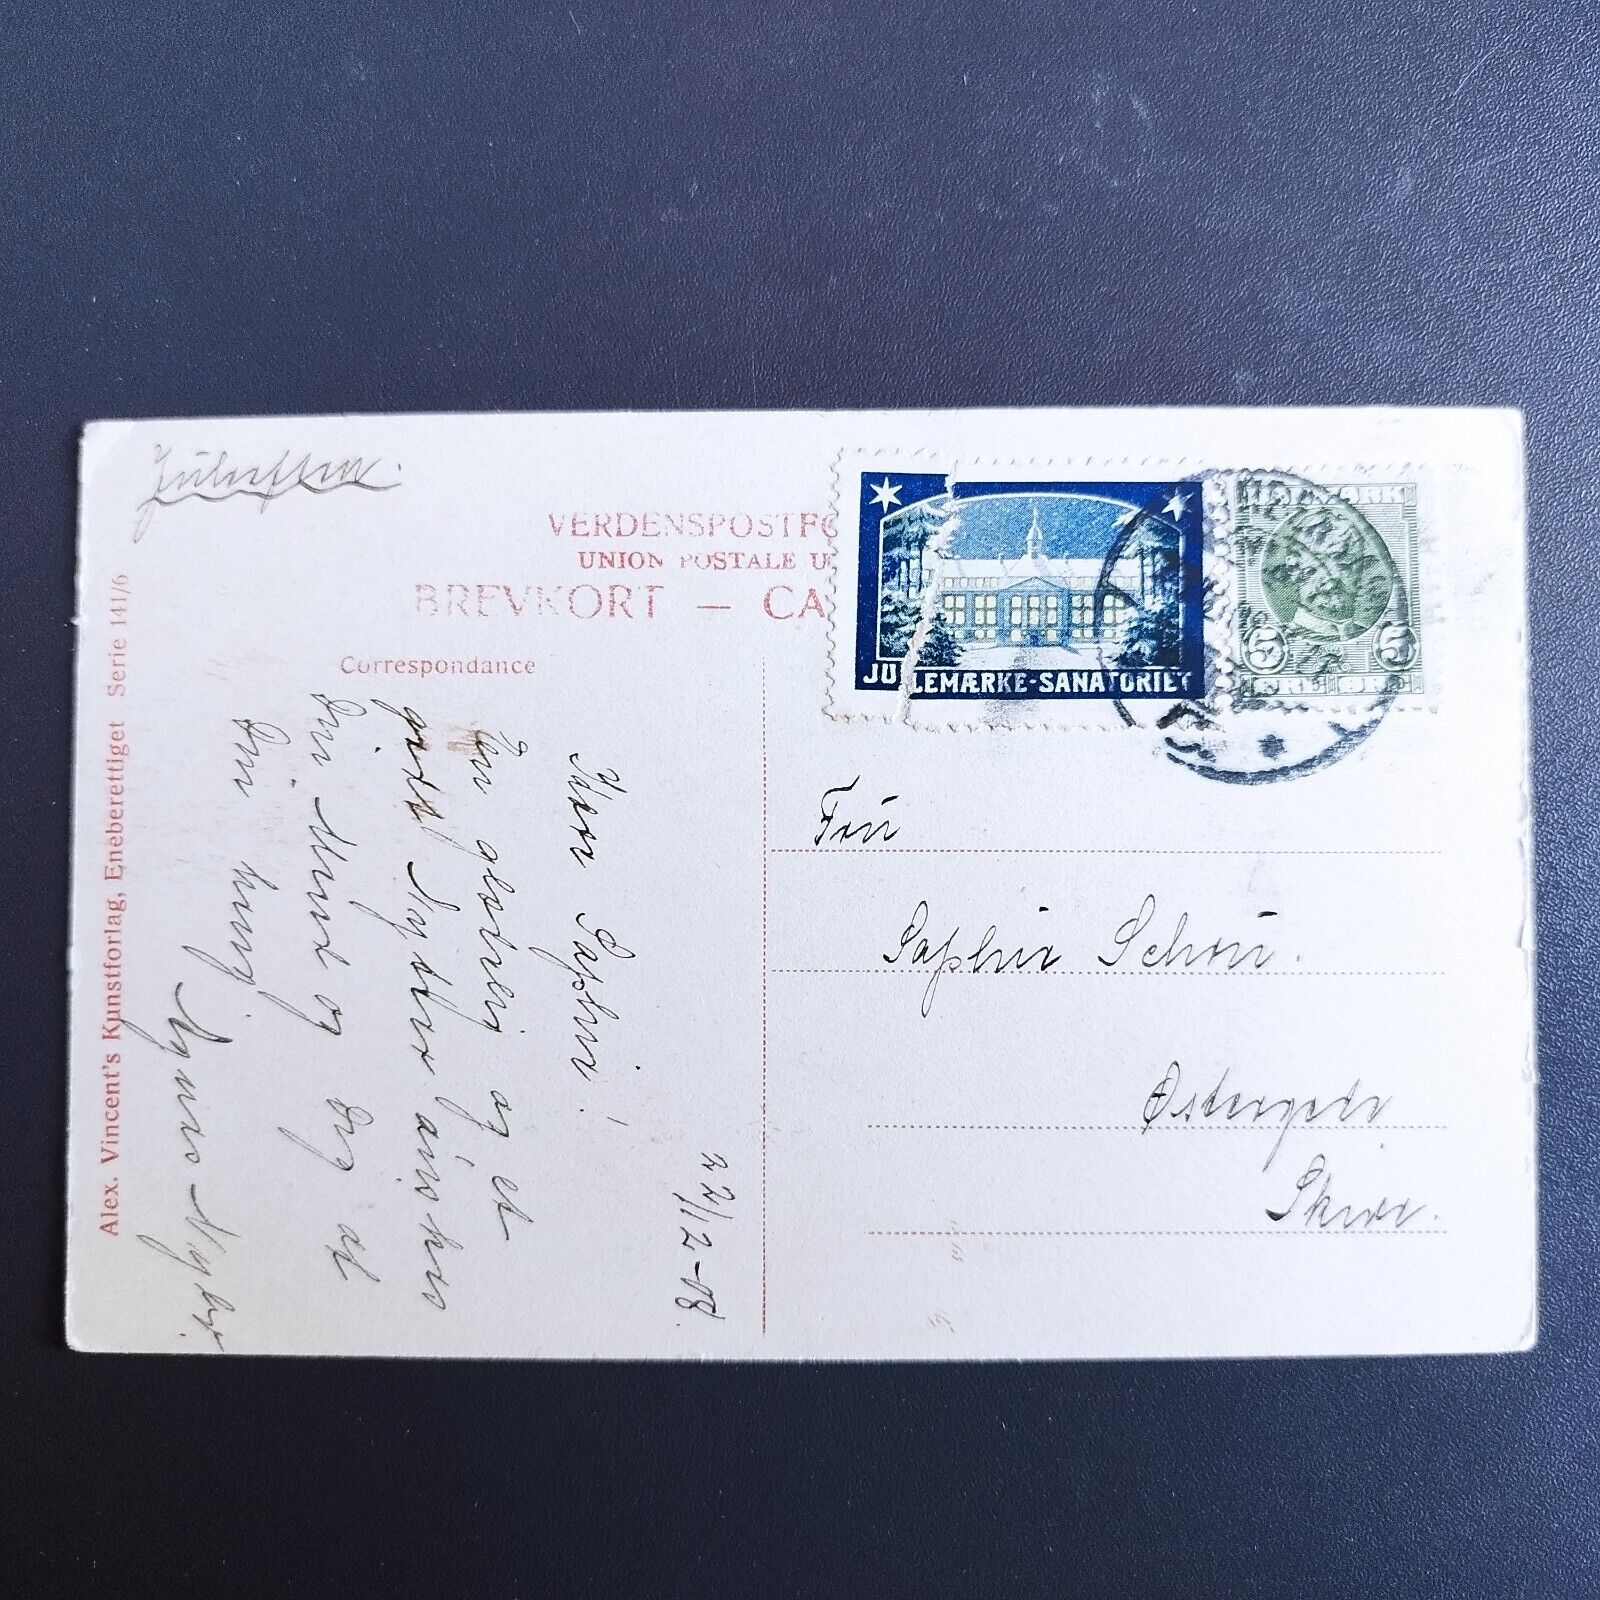 Juleaften.
VERDENSPOSTFO
UNION POSTALE U
BREVKORT — CA
Correspondance
Alex. Vincent's Kunstforlag, Eneberettiget Serie 141/6
JULEMÆRKE-SANATORIET
DANMARK
5 5
ØRE ØRE
22/12-08.
Kære Sophie!
En glædelig og et
godt Nytaar ønskes
Din Mand og Dig af
Din heng.
Agnes
Fru
Sophie Schou.
Østergade
Skive.